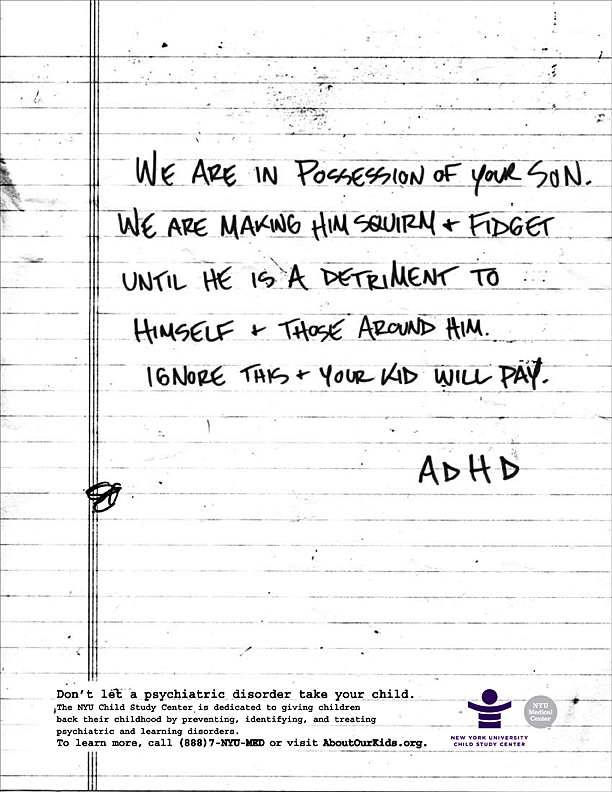 WE ARE IN POSSESSION OF YOUR SON.
WE ARE MAKING HIM SQUIRM + FIDGET
UNTIL HE IS A DETRIMENT TO
HIMSELF + THOSE AROUND HIM.
IGNORE THIS + YOUR KID WILL PAY.
ADHD
Don't let a psychiatric disorder take your child.
The NYU Child Study Center is dedicated to giving children
back their childhood by preventing, identifying, and treating
psychiatric and learning disorders.
To learn more, call (888)7-NYU-MED or visit AboutOurKids.org.
NEW YORK UNIVERSITY
CHILD STUDY CENTER
NYU
Medical
Center